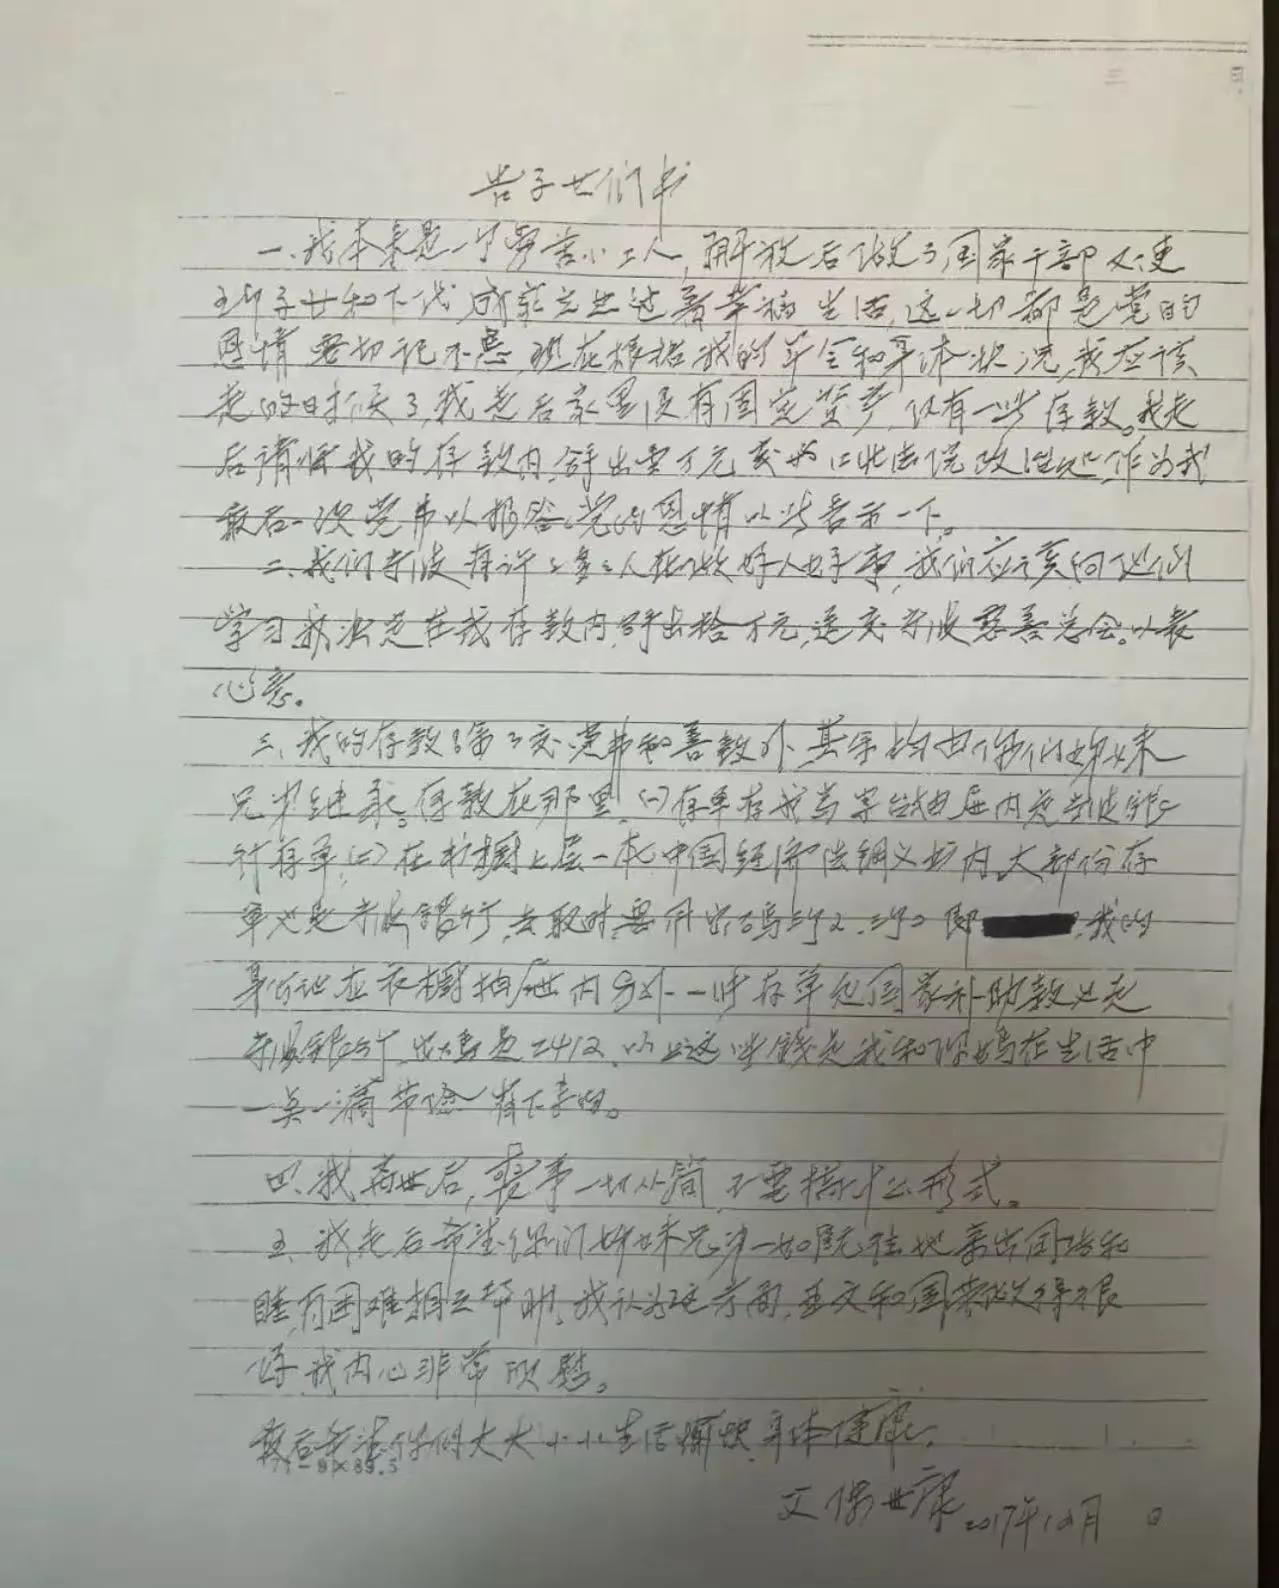 告子女们书
一、我本来是一个劳苦小工人,解放后做了国家干部又使
子女和下代成家立业过着幸福生活,这一切都是党的
恩情要切记不忘,现在根据我的年令和身体状况,我应该
走的时候了,我走后家里没有固定资产,仅有一些存款。我走
后请将我的存款内,拿出壹万元交给江北法院政治处,作为我
最后一次党费以报答党的恩情以此表示一下。
二、我们宁波有许许多多人在做好人好事,我们应该向他们
学习,我决定在我存款内,拿出拾万元,送交宁波慈善总会。以表
心意。
三、我的存款除了交党费和善款外,其余均由你们姊妹
兄弟继承。存款在那里,(一)存单存我写字台抽屉内是宁波银
行存单,(二)在书橱上层一本中国经济法纲义书内,大部份存
单也是宁波银行,去取时要用密码 即 ,我的
身份证在衣橱抽屉内,另外一些存单包国家补助款也是
宁波银行, 是2412,以上这些钱是我和你妈在生活中
一点一滴节俭省下来的。
四、我离世后,丧事一切从简,不要搞什么形式。
五、我走后希望你们姊妹兄弟一如既往地亲密团结和
睦,有困难相互帮助,我认为这方面,亚文和国荣做得很
好,我内心非常欣慰。
最后希望你们大大小小生活愉快,身体健康。
父 世康 2017年10月 日